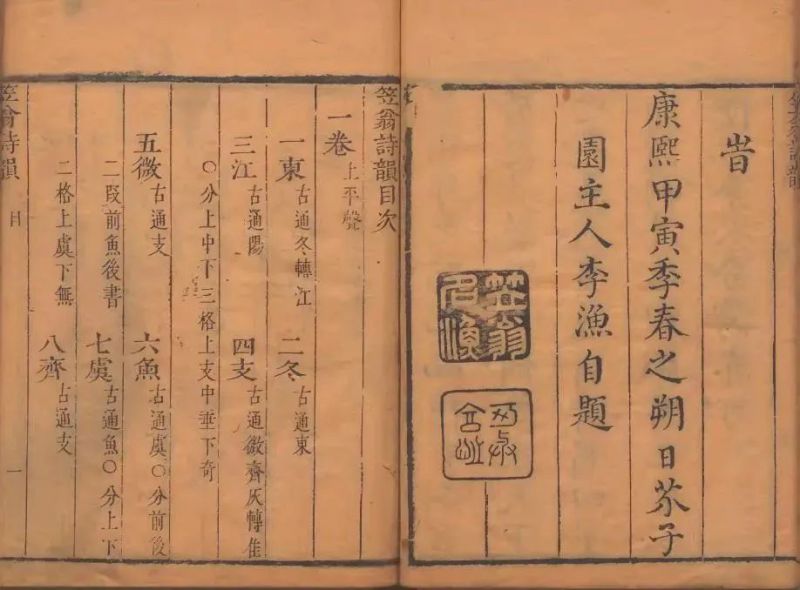 旹
康熙甲寅季春之朔日芥子
園主人李漁自題
笠翁
名漁
笠翁詩韻目次
一卷 上平聲
一東 古通冬轉江 二冬 古通東
三江 古通陽 四支 古通微齊灰轉佳
〇分上中下三格上支中垂下奇
五微 古通支 六魚 古通虞〇分前後
二段前魚後書 七虞 古通魚〇分上下
二格上虞下無 八齊 古通支
笠翁詩韻 目 一